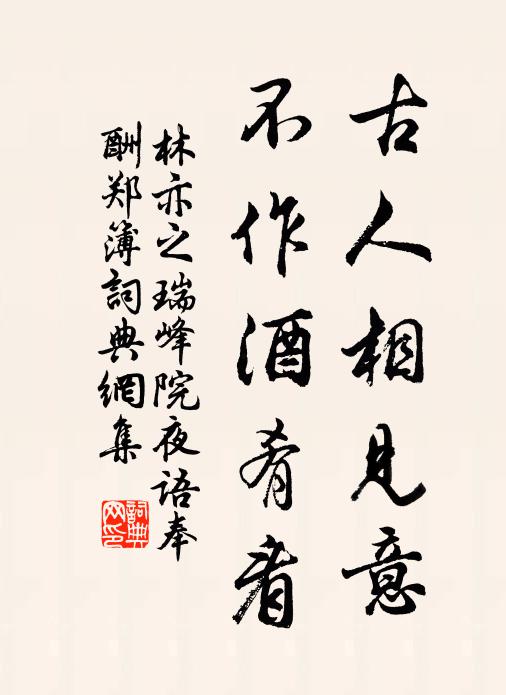 古人相見意
不作酒肴看
林亦之瑞峰院夜语奉
酬郑簿詞典網集
詞典网印